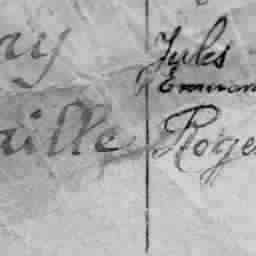 ry Jules
Emmanu
aille Roge